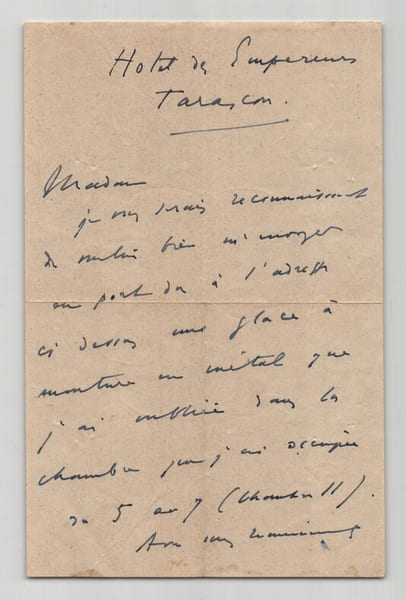 Hotel des Empereurs
Tarascon.
Madame
je vous serais reconnaissant
de vouloir bien m'envoyer
en port dû à l'adresse
ci dessus une glace à
monture en métal que
j'ai oubliée dans la
chambre que j'ai occupée
du 5 au 7 (chambre 11).
Avec mes remerciements